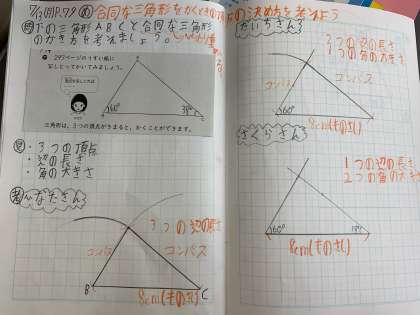 7/13(月)P.79 め 合同な三角形をかくときの頂点の決め方を考えよう
問 下の三角形ABCと合同な三角形
のかき方を考えましょう。
三角形は、3つの頂点がきまると、かくことができます。
60°
見
・3つの頂点
・辺の長さ
・角の大きさ
考 ひなたさん
3つの辺の長さ
コンパス
コンパス
B
C
8cm(ものさし)
だいちさん
2つの辺の長さ
1つの角の大きさ
コンパス
60°
8cm(ものさし)
さくらさん
1つの辺の長さ
2つの角の大きさ
60°
8cm(ものさし)